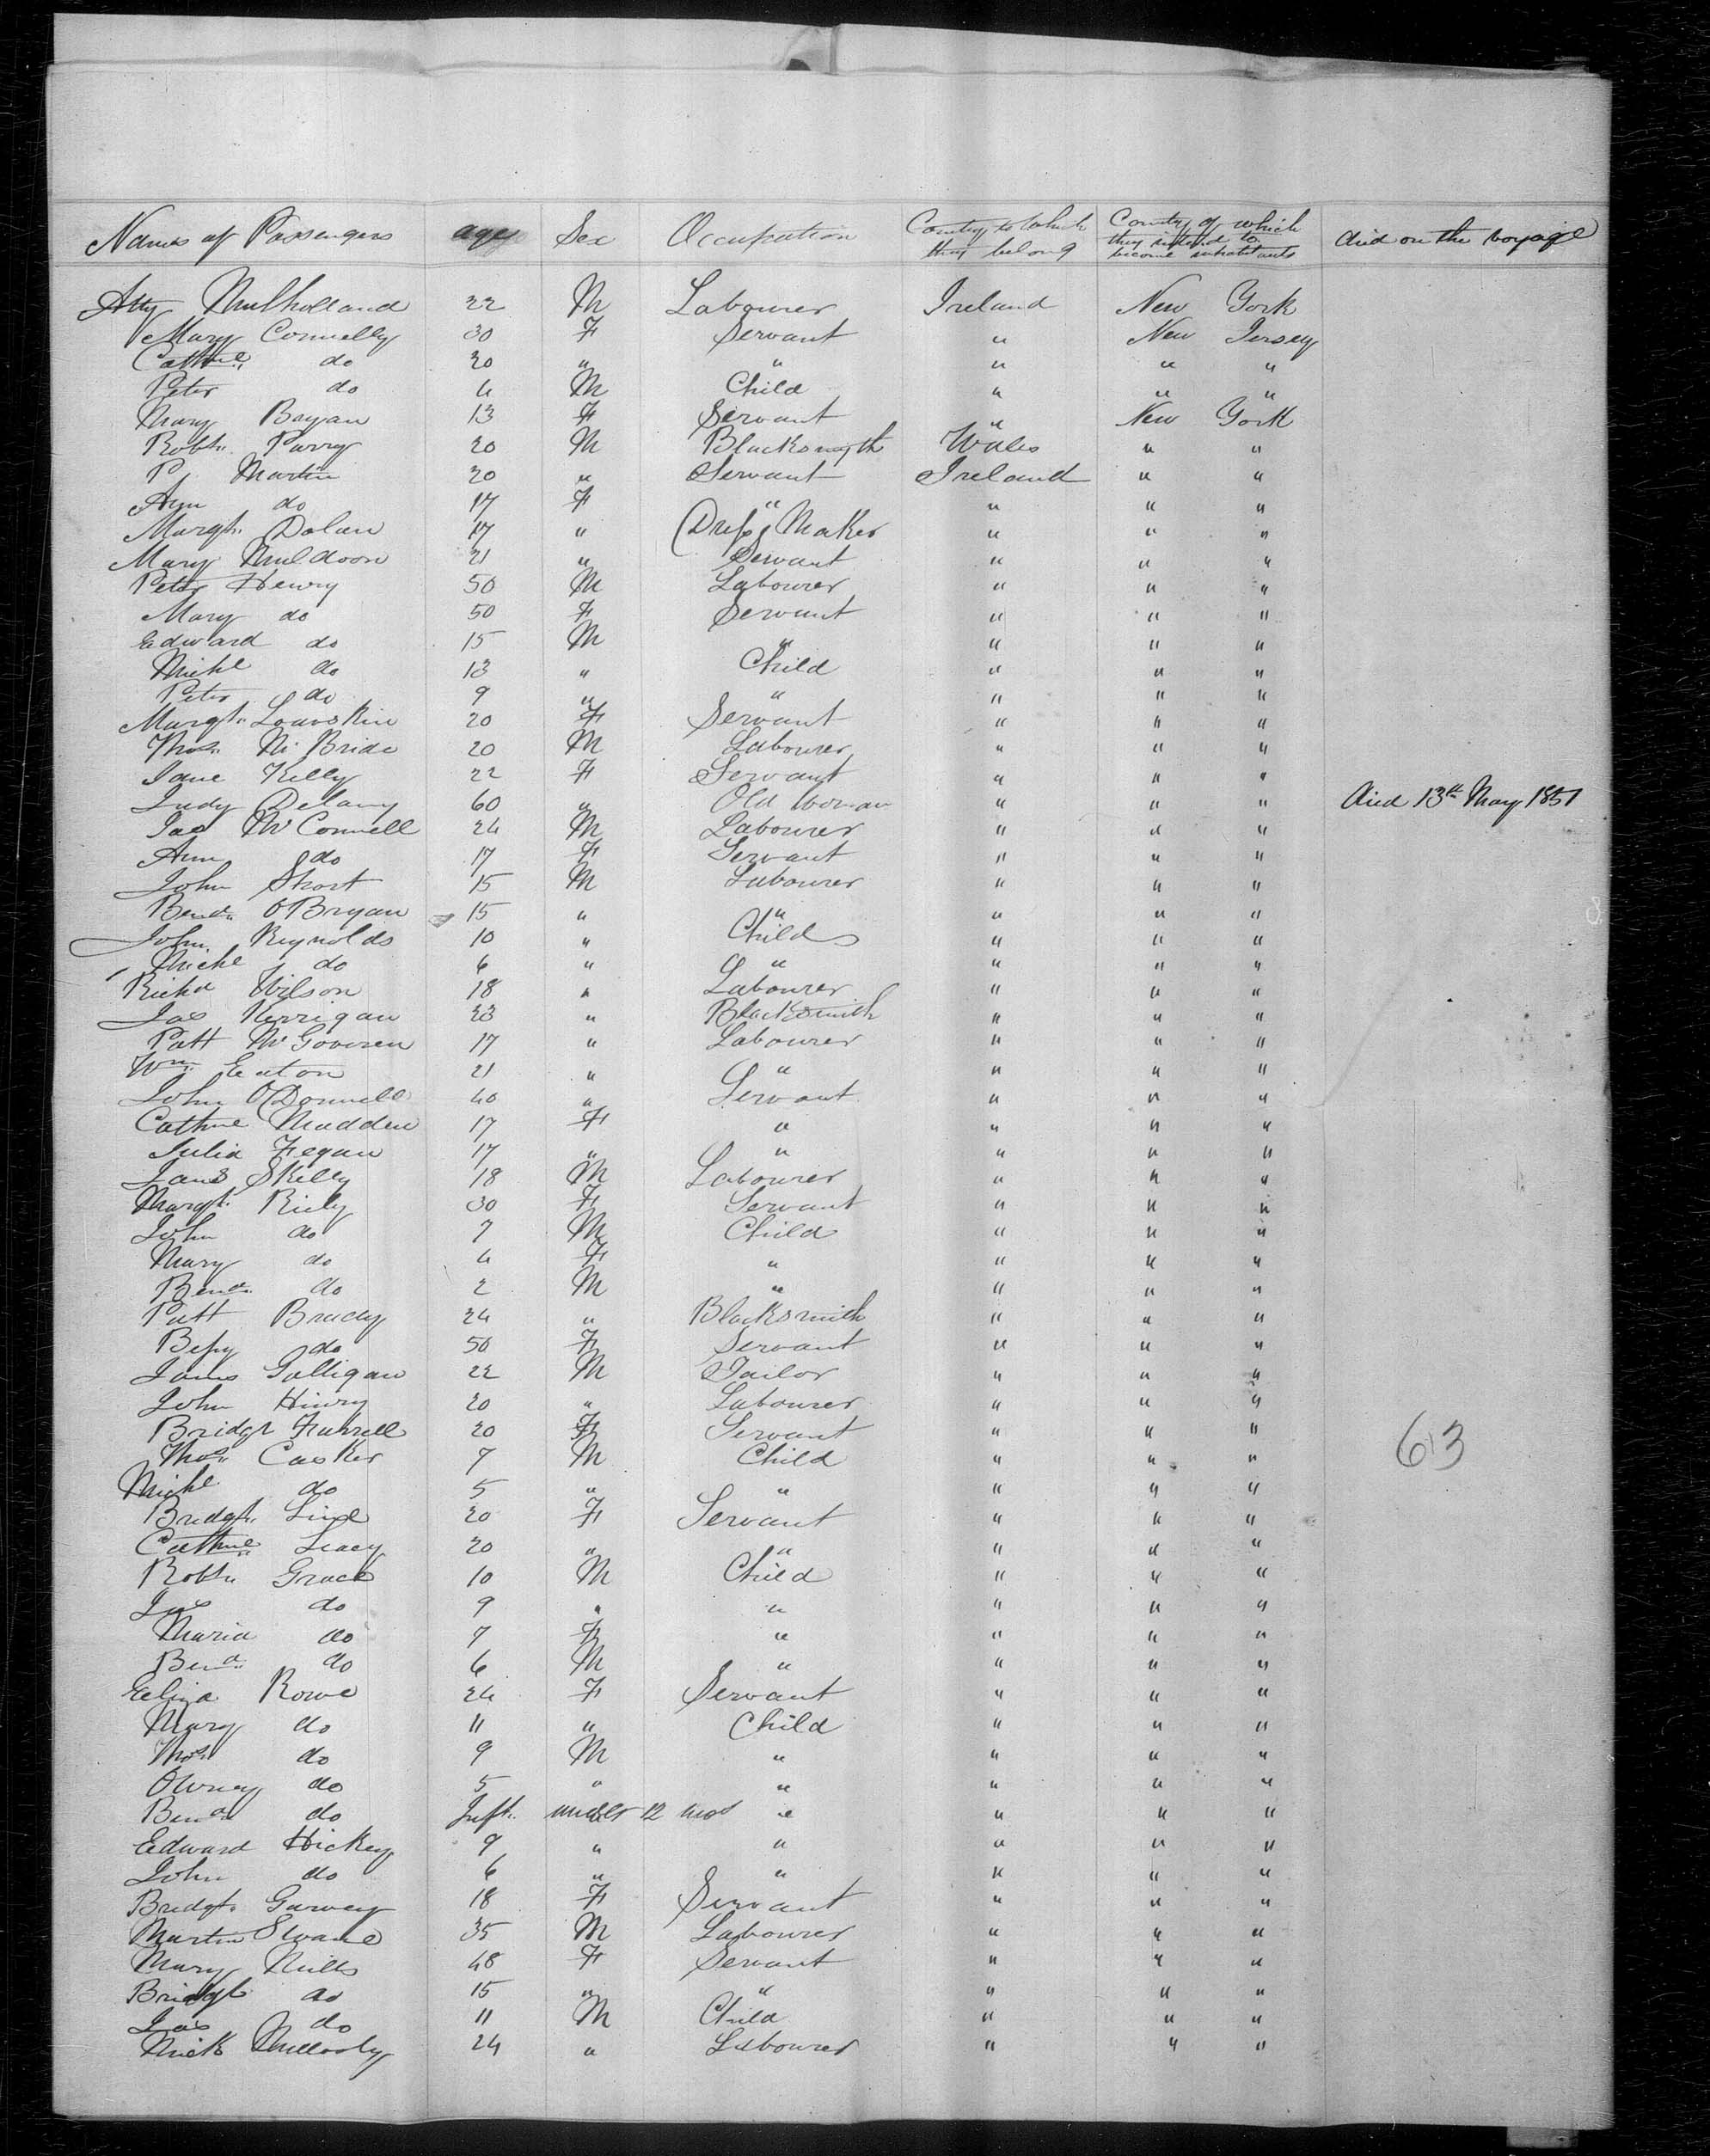 Names of Passengers ages Sex Occupation County to which they belong County of which they intend to become inhabitants died on the voyage
Mulholland 22 M Labourer Ireland New York
Mary Connelly 30 F Servant " New Jersey
Cathne do 20 " " " " "
Peter do 4 M Child " " "
Mary Bryan 13 F Servant " New York
Robt. Parry 20 M Blacksmyth Wales " "
P. Martin 20 " Servant Ireland " "
Ann do 17 F " " " "
Margt. Dolan 17 " Dress Maker " " "
Mary Muldoon 21 " Servant " " "
Peter Henry 50 M Labourer " " "
Mary do 50 F Servant " " "
Edward do 15 M " " " "
Michl do 13 " Child " " "
Peter do 9 " " " " "
Margt. 20 F Servant " " "
Thos. Mc Bride 20 M Labourer " " "
Jane Kelly 22 F Servant " " "
Judy Delany 60 " Old Woman " " " died 13th May 1851
Jas McConnell 24 M Labourer " " "
Ann do 17 F Servant " " "
John Short 15 M Labourer " " "
Bernd. O'Bryan 15 " " " " "
John Reynolds 10 " Child " " "
Michl do 6 " " " " "
Richd Wilson 18 " Labourer " " "
Jas Kerrigan 23 " Blacksmith " " "
Patt McGoveren 17 " Labourer " " "
Wm. Eaton 21 " " " " "
John O'Donnell 40 " Servant " " "
Cathne Madden 17 F " " " "
Julia Fegan 17 " " " " "
Skelly 18 M Labourer " " "
Margt. Riely 30 F Servant " " "
John do 7 M Child " " "
Mary do 4 F " " " "
Bernd. do 2 M " " " "
Patt Brady 24 " Blacksmith " " "
Bessy do 50 F Servant " " "
James Galligan 22 M Tailor " " "
John Hinry 20 " Labourer " " "
Bridgt 20 F Servant " " "
Thos. Casker 7 M Child " " "
613
Michl do 5 " " " " "
Bridgt. 20 F Servant " " "
Cathne 20 " " " " "
Robt. Grace 10 M Child " " "
Jas do 9 " " " " "
Maria do 7 F " " " "
Bernd. do 6 M " " " "
Eliza Rowe 24 F Servant " " "
Mary do 11 " Child " " "
Thos. do 9 M " " " "
Owney do 5 " " " " "
Bernd. do Inft. under 12 mos " " " "
Edward Hickey 9 " " " " "
John do 6 " " " " "
Bridgt. Garvey 18 F Servant " " "
Martin 35 M Labourer " " "
Mary Mills 48 F Servant " " "
Bridgt do 15 " " " " "
Jas do 11 M Child " " "
Mick 24 " Labourer " " "